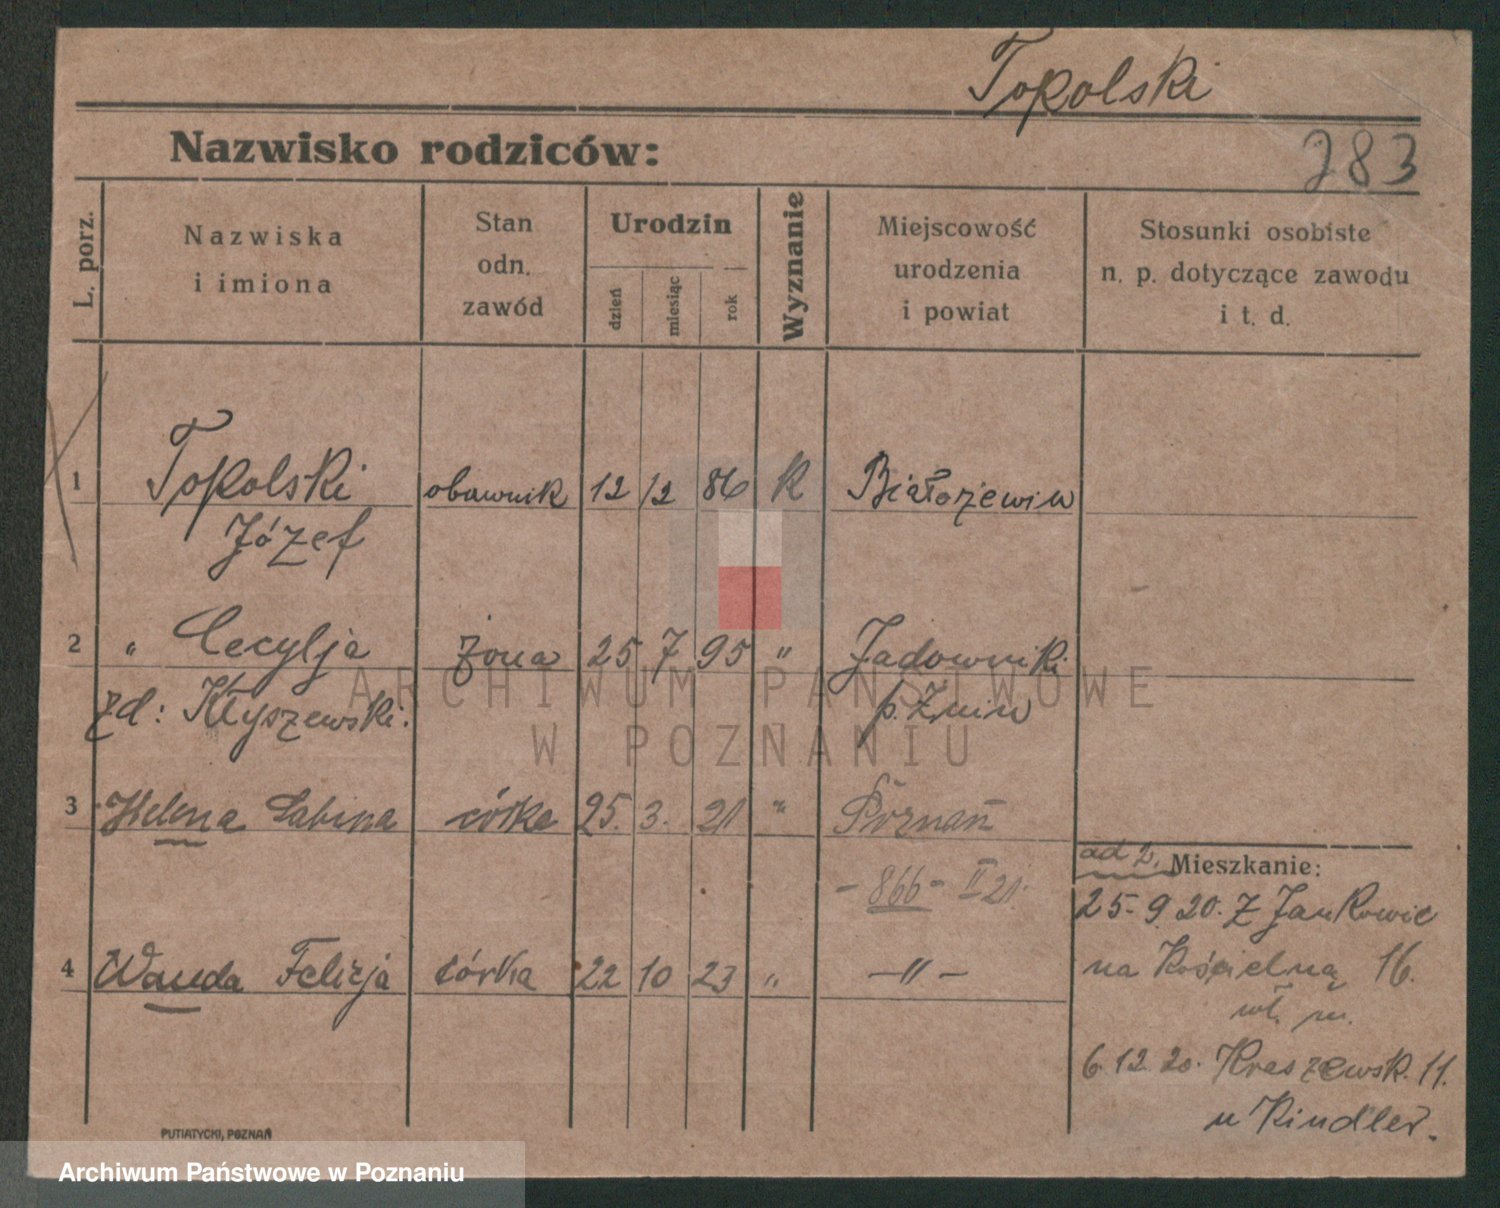 Topolski
Nazwisko rodziców:
283
L. porz.
Nazwiska
i imiona
Stan
odn.
zawód
Urodzin
dzień
miesiąc
rok
Wyznanie
Miejscowość
urodzenia
i powiat
Stosunki osobiste
n. p. dotyczące zawodu
i t. d.
1 Topolski obuwnik 12 12 86 K Białożewin
Józef
2 " Cecylja żona 25 7 95 " Jadowniki
zd: Kłyszewski. p. Żnin
3 Helena Sabina córka 25. 3. 21 " Poznań
- 866 - II 21.
4 Wanda Felicja córka 22 10 23 " -"-
ad 2. Mieszkanie:
25. 9. 20. z Jankowic
na Kościelną 16.
wł. m.
6. 12. 20. Kraszewsk. 11.
u Kindler.
PUTIATYCKI, POZNAŃ
ARCHIWUM PAŃSTWOWE
W POZNANIU
Archiwum Państwowe w Poznaniu